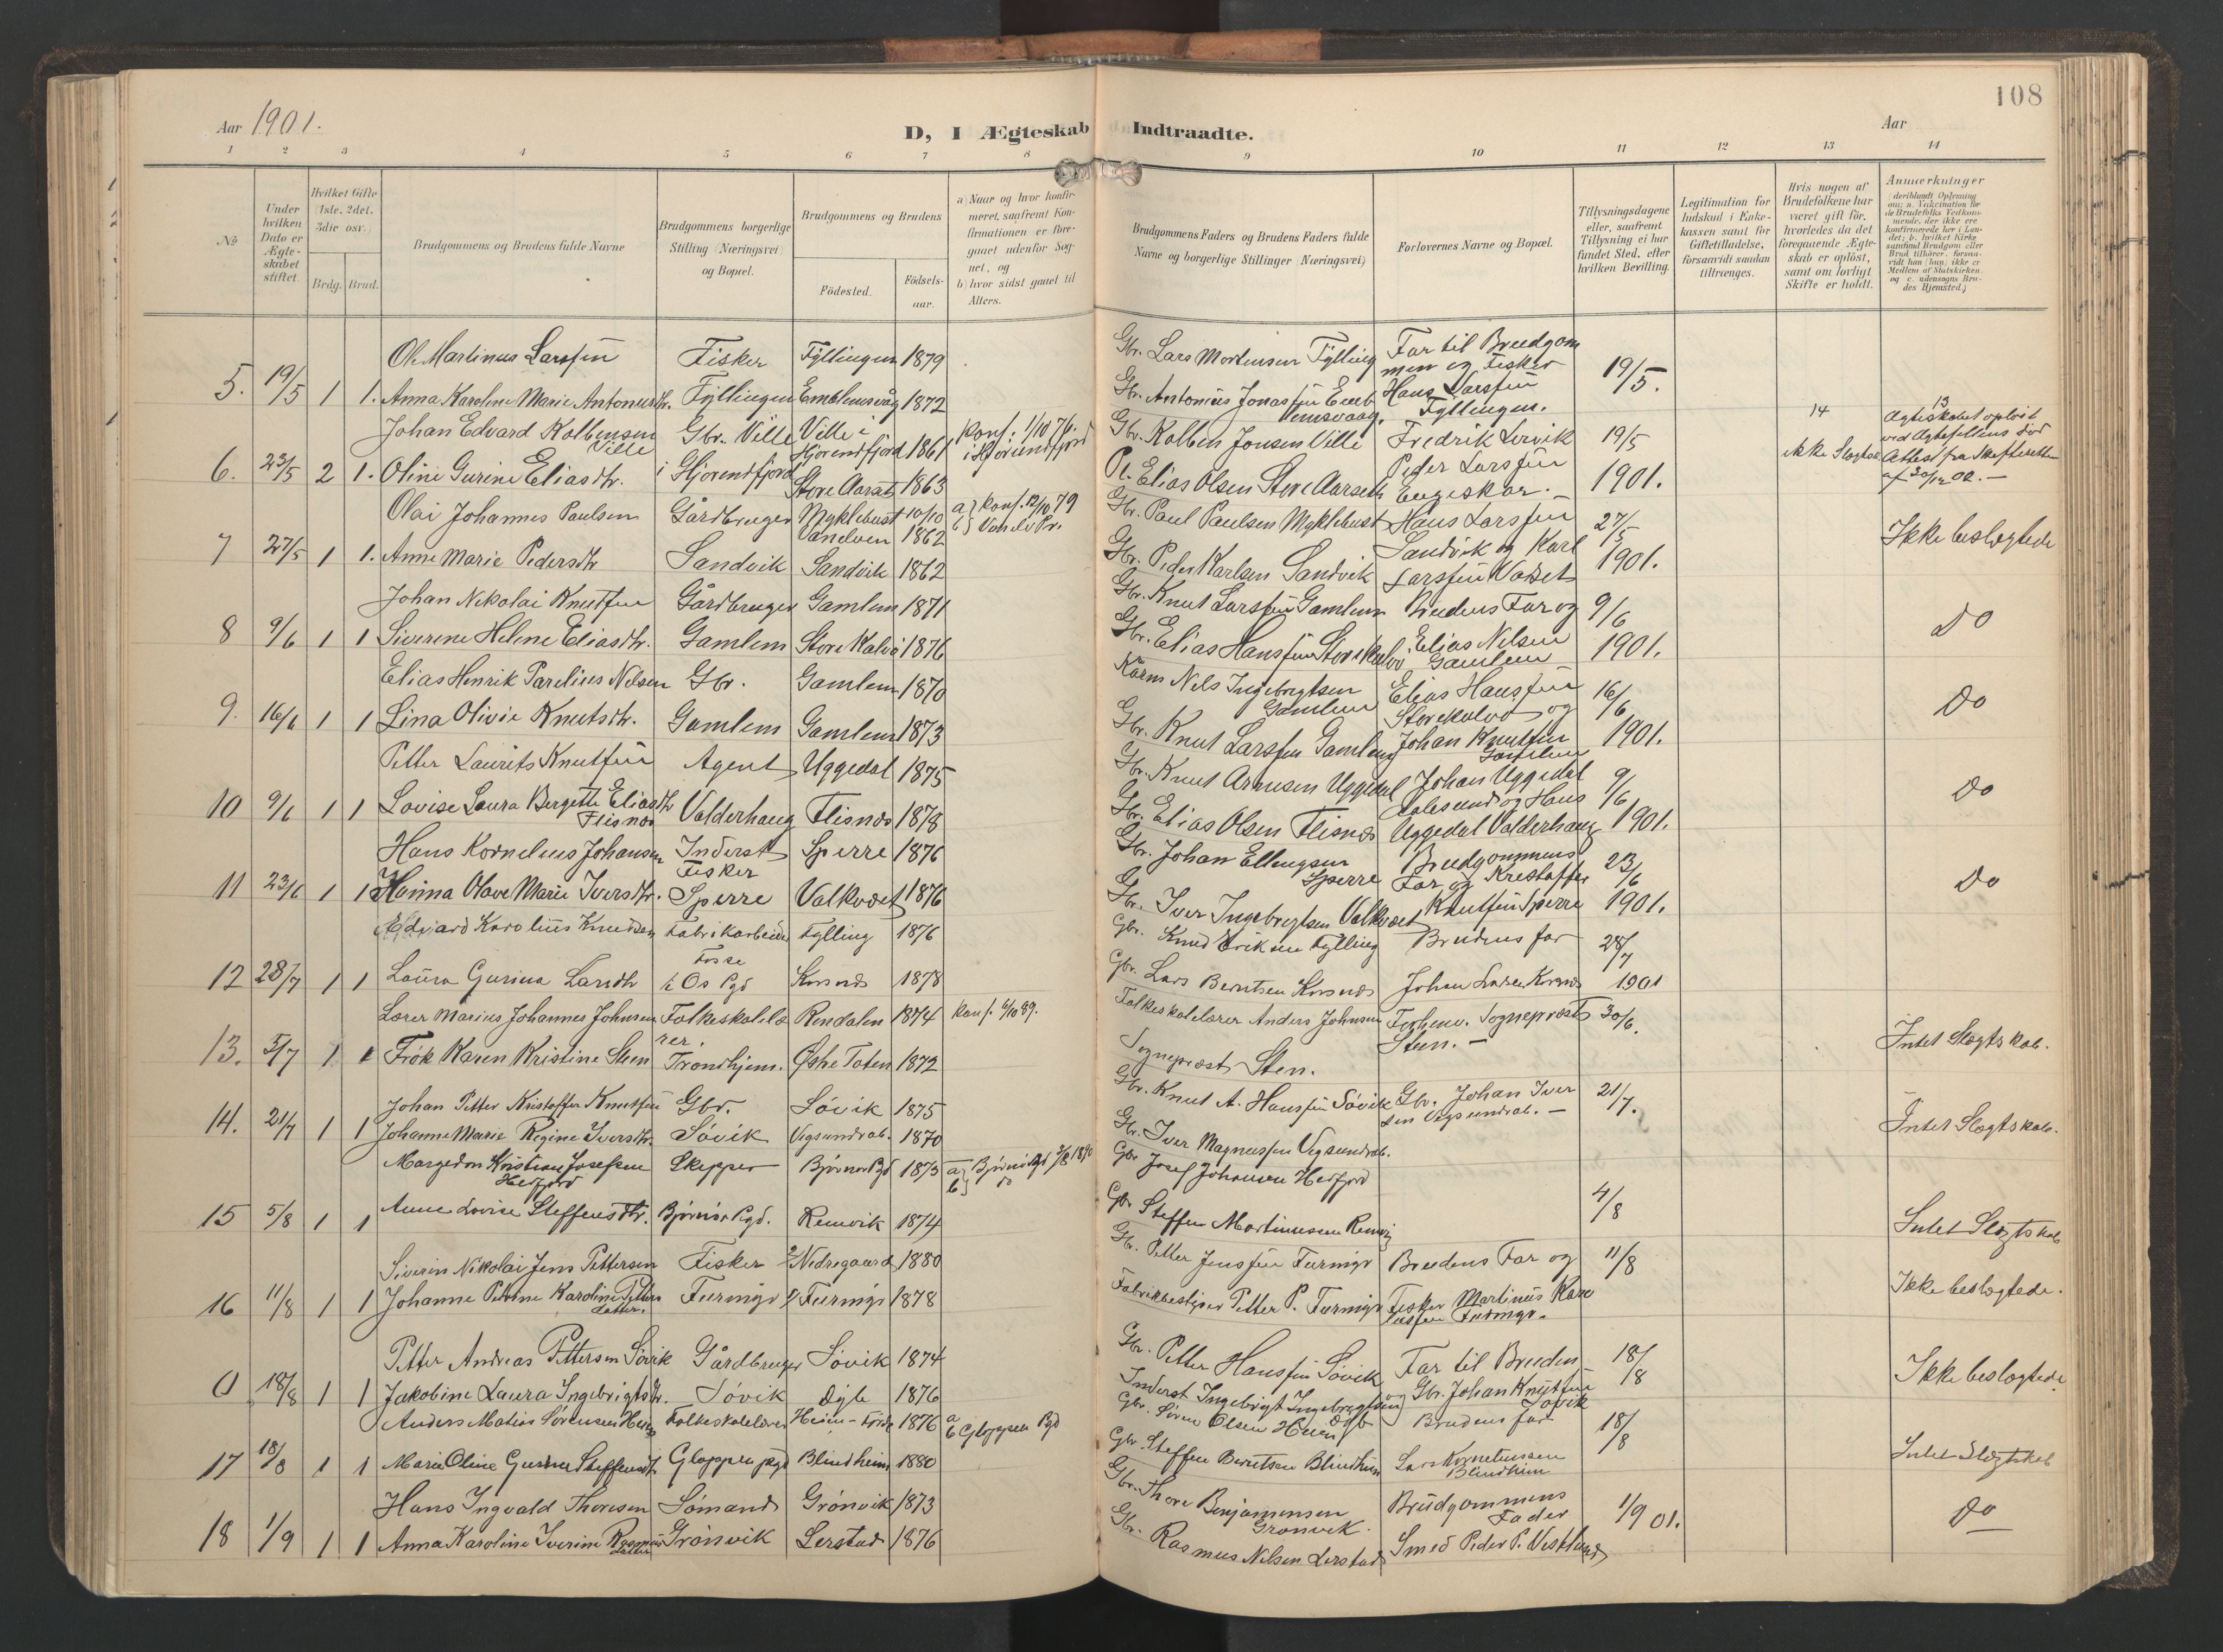 108
Aar 1901.
D, I Ægteskab Indtraadte.
Aar
1 2 3 4 5 6 7 8 9 10 11 12 13 14
No
Under hvilken Dato er Ægteskabet stiftet.
Hvilket Gifte (1ste, 2det, 3die osv.)
Brdg. Brud.
Brudgommens og Brudens fulde Navne
Brudgommens borgerlige Stilling (Næringsvei) og Bopæl.
Brudgommens og Brudens
Födested.
Födselsaar.
a) Naar og hvor konfirmeret, saafremt Konfirmationen er foregaaet udenfor Sognet, og
b) hvor sidst gaaet til Alters.
Brudgommens Faders og Brudens Faders fulde Navne og borgerlige Stillinger (Næringsvei)
Forlovernes Navne og Bopæl.
Tillysningsdagene eller, saafremt Tillysning ei har fundet Sted, efter hvilken Bevilling.
Legitimation for Indskud i Enkekassen samt for Giftetilladelse, forsaavidt saadan tiltrænges.
Hvis nogen af Brudefolkene har været gift för, hvorledes da det foregaaende Ægteskab er oplöst, samt om lovligt Skifte er holdt.
Anmærkninger
Ole Martinus Larssen Fisker Fyllingen 1879 Gbr. Lars Mortensen Fylling Far til Brudgom
5. 19/5 1 1. Anna Karoline Marie Antonusdtr. Fyllingen Emblemsvåg 1872 Gbr. Antonius Jonassen Emblemsvaag. men og Fisker Hans Larssen Fyllingen. 19/5.
Johan Edvard Kolbensen Ville Gbr. Ville Ville i Hjorendfjord 1861 Konf. 1/10 76. i Hjorendfjord Gbr. Kolben Jonsen Ville Fredrik Lervik 19/5 14 13 Ægteskabet opløst ved Ægtefellens død
6. 23/5 2 1. Oline Gurine Eliasdtr. i Hjorendfjord Store Aarset 1863 Pl. Elias Olsen Store Aarseth Peder Larssen 1901. ikke Slægtsk. Attest fra Skifteretten
Olai Johannes Paulsen Gårdbruger Myklebust Vanelven 10/10 1862 a) Konf. 12/10 79 b) Vanelv Pr. Gbr. Paul Paulsen Myklebust Hans Larssen 27/5
7 27/5 1 1. Anne Marie Pedersdtr Sandvik Sandvik 1862 Gbr. Peder Karlsen Sandvik Sandvik og Karl Larssen Vatset 1901. Ikke beslægtede
Johan Nikolai Knutsen Gårdbruger Gamlem 1871 Gbr. Knut Larssen Gamlem Brudens Far og 9/6
8 9/6 1 1 Siverine Helene Eliasdtr. Gamlem Store Kalvø 1876 Gbr. Elias Hanssen Storekalvø Elias Nilsen Gamlem 1901. Do
Elias Henrik Parelius Nilsen Gbr. Gamlem 1870 Kårm Nels Ingebregtsen Gamlem Elias Hanssen 16/6
9. 16/6 1 1 Lina Olivie Knutsdtr. Gamlem Gamlem 1873 Gbr. Knut Larssen Gamlem Storekalvø og Johan Knutsen Gamlem 1901. Do
Petter Laurits Knutsen Agent Uggedal 1875 Gbr. Knut Arnesen Uggedal Johan Uggedal 9/6
10 9/6 1 1 Lovise Laura Bergette Eliasdtr Flisnæs Valderhaug Flisnæs 1878 Gbr. Elias Olsen Flisnæs Aalesund og Hans Uggedal Valderhaug 1901. Do
Hans Kornelius Johansen Inderst Fisker Sperre 1876 Gbr. Johan Ellingsen Sperre Brudgommens 23/6
11 23/6 1 1 Hanna Olave Marie Iversdtr. Sperre Valkvæt 1876 Gbr. Iver Ingebregtsen Valkvæt Far og Kristoffer Knutsen Sperre 1901. Do
Edvard Karolius Knudsen Fabrikarbeider Fylling 1876 Gbr. Knud Eriksen Fylling Brudens far 28/7
12 28/7 1 1 Laura Gurina Larsdtr Fosse Os Pgd Korsnæs 1878 Gbr. Lars Berntsen Korsnæs Johan Larsen Korsnæs 1901
Lærer Marius Johannes Johnsen Folkeskolelærer. Rendalen 1874 Konf. 6/10 89. Folkeskolelærer Anders Johnsen Forhenv. Sogneprest Steen. 30/6.
13. 3/7 1 1 Frök Karen Kristine Steen Trondhjem. Østre Toten 1872 Sogneprest Sten. Intet Slægtskab.
Johan Petter Kristoffer Knutsen Gbr. Søvik 1875 Gbr. Knut A. Hanssen Søvik Gbr. Johan Iversen Vegsundrab. 21/7.
14. 21/7 1 1 Johanne Marie Regine Iversdtr. Søvik Vegsundrab. 1870 Gbr. Iver Magnussen Vegsundrab. Intet Slægtskab.
Margedon Kristian Josefsen Herfjord Skipper Bjørnør Pgd 1873 a) Bjørnør Pgd b) do Gbr Josef Johansen Herfjord
15 5/8 1 1 Anne Lovise Steffensdtr. Bjørnør Pgd. Remvik 1874 Gbr Steffen Martinussen Remvig 4/8 Intet Slægtskab
Siverin Nikolai Jens Pettersen Fisker Nedregaard 1880 Gbr. Petter Jenssen Furmyr Brudens Far og 11/8
16 11/8 1 1 Johanne Petrine Karoline Pettersdatter. Furmyr Furmyr 1878 Fabrikbestyrer Petter P. Furmyr Fisker Martinus Karolussen Furmyr. Ikke beslægtede.
Petter Andreas Pettersen Søvik Gårdbruger Søvik 1874 Gbr. Petter Hanssen Søvik Far til Bruden 18/8
0 18/8 1 1 Jakobine Laura Ingebrigtsdtr. Søvik Digle 1876 Inderst Ingebrigt Ingebregtsen og Gbr. Johan Knutsen Søvik Ikke beslægtede
Anders Matias Sørensen Heien Folkeskolelærer Heien 1876 a b Gloppen Pgd Gbr. Søren Olsen Heien Brudens far 18/8
17 18/8 1 1 Marie Oline Gurine Steffensdtr Gloppen pgd Blindheim 1880 Gbr. Steffen Berntsen Blindheim Lars Korneliussen Blindheim Intet Slægtskab
Hans Ingvald Thoresen Sømand Grønvik 1873 Gbr. Thore Benjaminsen Grønvik. Brudgommens Fader 1/9 01.
18 1/9 1 1 Anna Karoline Iverine Rasmusdatter Grønvik Lerstad 1876 Gbr. Rasmus Nilsen Lerstad Smed Peder P. Vestlund Do